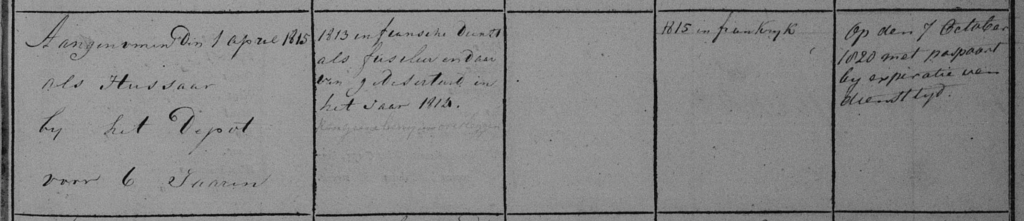 Aangenomen den 1 april 1815
als Hussaar
by het Depot
voor 6 Jaaren
1813 in fransche dienst
als fuselier en daar
van gedeserteerd in
het Jaar 1813.
1815 in frankryk
Op den 7 October
1820 met paspoort
by expiratie van
diensttyd.